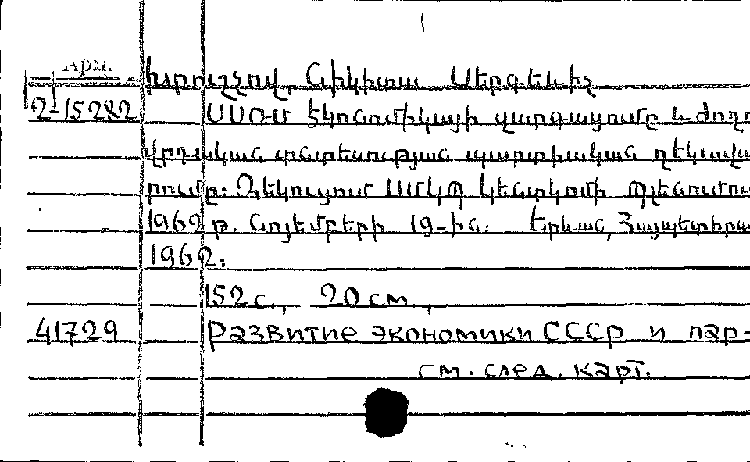 Арм.
Խրուշչով, Նիկիտա Սերգեևիչ
2-15282 ՍՍՌՄ էկոնոմիկայի զարգացումը և ժողո
վրդական տնտեսության պարտիական ղեկավա
րումը: Զեկուցում ՍՄԿՊ կենտկոմի պլենումում
1962 թ. նոյեմբերի 19-ին. Երևան, Հայպետհրատ
1962.
152 с., 20 см.,
41729 Развитие экономики СССР и пар-
см. след. карт.